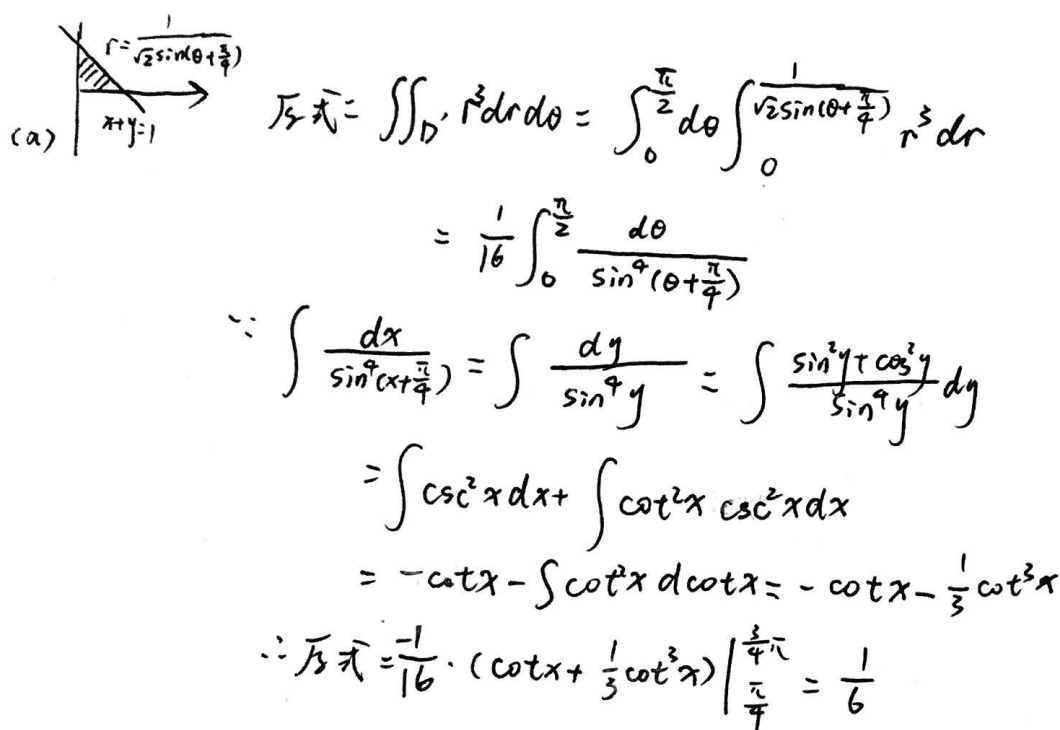 r=\frac{1}{\sqrt{2}\sin(\theta+\frac{\pi}{4})}
x+y=1
(a)
原式=\iint_{D'} r^3 dr d\theta = \int_0^{\frac{\pi}{2}} d\theta \int_0^{\frac{1}{\sqrt{2}\sin(\theta+\frac{\pi}{4})}} r^3 dr
= \frac{1}{16} \int_0^{\frac{\pi}{2}} \frac{d\theta}{\sin^4(\theta+\frac{\pi}{4})}
∵ \int \frac{dx}{\sin^4(x+\frac{\pi}{4})} = \int \frac{dy}{\sin^4 y} = \int \frac{\sin^2 y+\cos^2 y}{\sin^4 y} dy
= \int \csc^2 x dx + \int \cot^2 x \csc^2 x dx
= -\cot x - \int \cot^2 x d\cot x = -\cot x - \frac{1}{3}\cot^3 x
∴ 原式 = \frac{-1}{16} \cdot (\cot x + \frac{1}{3}\cot^3 x) |_{\frac{\pi}{4}}^{\frac{3}{4}\pi} = \frac{1}{6}